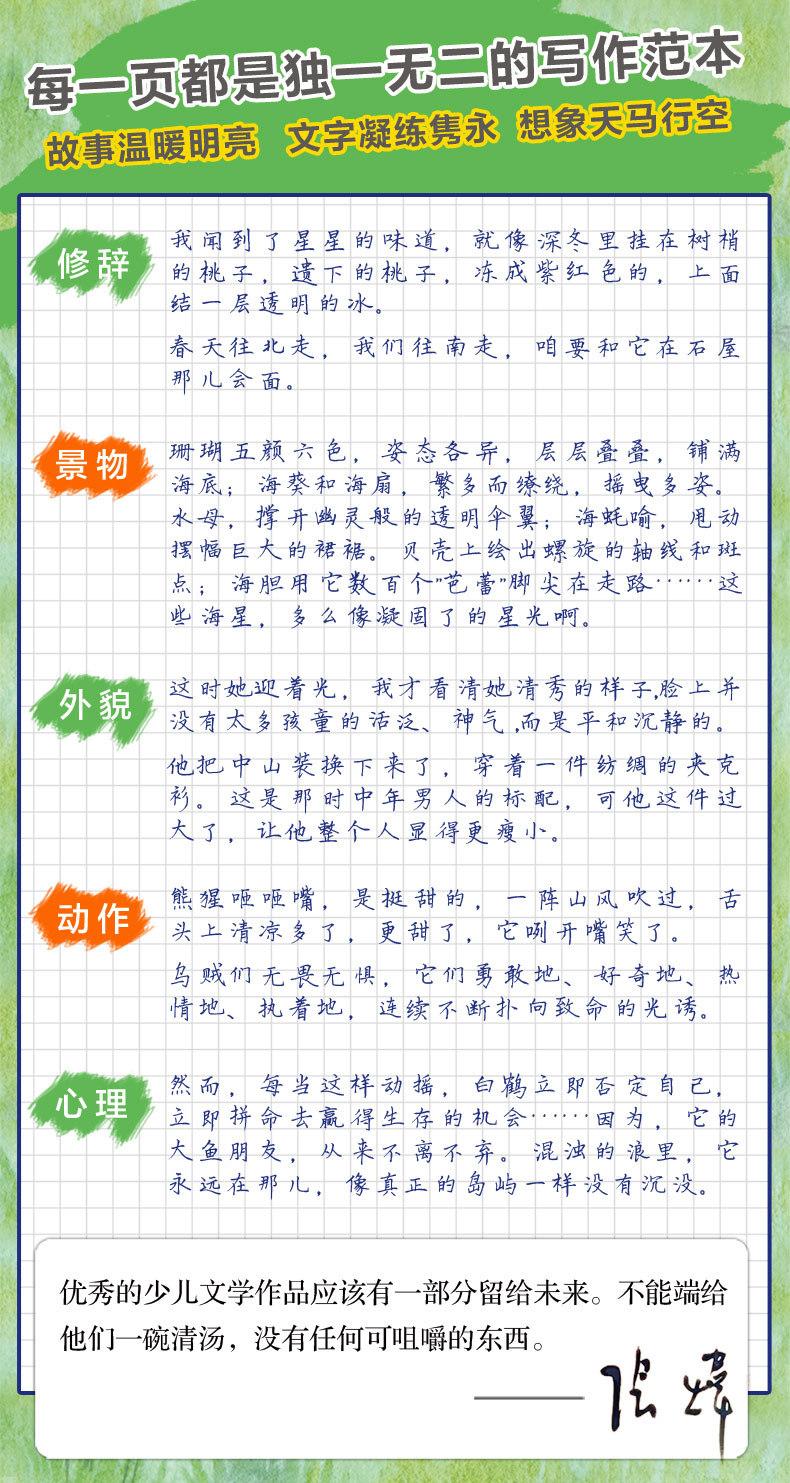 每一页都是独一无二的写作范本
故事温暖明亮 文字凝练隽永 想象天马行空
修辞
我闻到了星星的味道，就像深冬里挂在树梢
的桃子，遗下的桃子，冻成紫红色的，上面
结一层透明的冰。
春天往北走，我们往南走，咱要和它在石屋
那儿会面。
景物
珊瑚五颜六色，姿态各异，层层叠叠，铺满
海底；海葵和海扇，繁多而缭绕，摇曳多姿。
水母，撑开幽灵般的透明伞翼；海蚝喻，甩动
摆幅巨大的裙裾。贝壳上绘出螺旋的轴线和斑
点；海胆用它数百个"芭蕾"脚尖在走路……这
些海星，多么像凝固了的星光啊。
外貌
这时她迎着光，我才看清她清秀的样子,脸上并
没有太多孩童的活泛、神气,而是平和沉静的。
他把中山装换下来了，穿着一件纺绸的夹克
衫。这是那时中年男人的标配，可他这件过
大了，让他整个人显得更瘦小。
动作
熊猩咂咂嘴，是挺甜的，一阵山风吹过，舌
头上清凉多了，更甜了，它咧开嘴笑了。
乌贼们无畏无惧，它们勇敢地、好奇地、热
情地、执着地，连续不断扑向致命的光诱。
心理
然而，每当这样动摇，白鹤立即否定自己，
立即拼命去赢得生存的机会……因为，它的
大鱼朋友，从来不离不弃。混浊的浪里，它
永远在那儿，像真正的岛屿一样没有沉没。
优秀的少儿文学作品应该有一部分留给未来。不能端给
他们一碗清汤，没有任何可咀嚼的东西。
——张炜